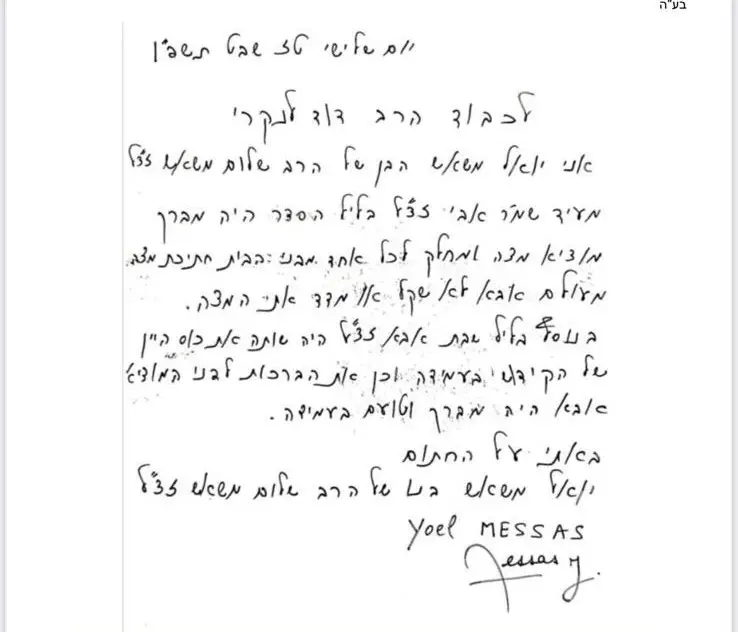 בע"ה
יום שלישי טז שבט תשפ"ן
לכבוד הרב דוד לנקרי
אני יואל משאש הבן של הרב שלום משאש זצ"ל
מעיד שמו"ר אבי זצ"ל בליל הסדר היה מברך
מוציא מצה ומחלק לכל אחד מבני הבית חתיכת מצה.
מעולם אבא לא שקל או מדד את המצה.
בנוסף בליל שבת אבא זצ"ל היה שותה את כוס היין
של הקידוש בעמידה וכן את הברכות לבני המוציא
אבא היה מברך וטועם בעמידה.
באתי על החתום
יואל משאש בנו של הרב שלום משאש זצ"ל
Yoel MESSAS
Messas Y.